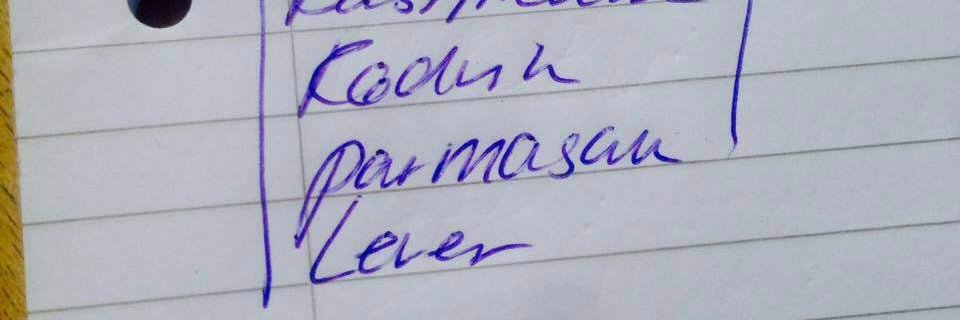 Radish
parmasan
Lever